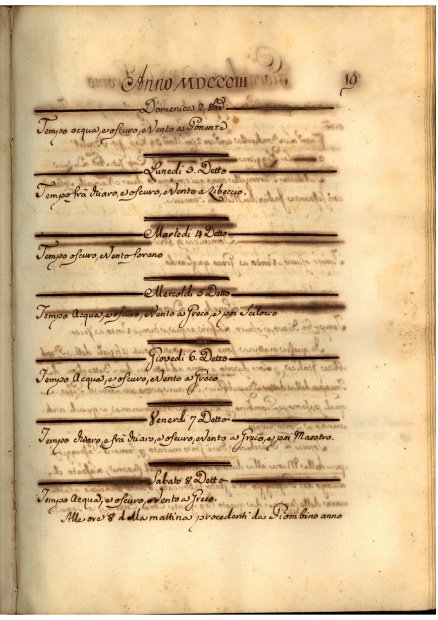 Anno MDCCCIII
19
Domenica 2. 8bre
Tempo acqua, e oscuro, e Vento a Ponente
Lunedi 3. Detto
Tempo frà chiaro, e oscuro, e Vento a Libeccio.
Martedi 4 Detto
Tempo oscuro, e Vento forano
Mercoldi 5 Detto
Tempo Acqua, e oscuro, e Vento a Greco, e poi Scilocco
Giovedi 6. Detto
Tempo Acqua, e oscuro, e Vento a Greco
Venerdi 7 Detto
Tempo chiaro, e frà chiaro, e oscuro, e Vento a Greco, e poi Maestro.
Sabato 8 Detto
Tempo Acqua, e oscuro, e Vento a Greco.
Alle ore 8 della mattina procedenti da Piombino anno